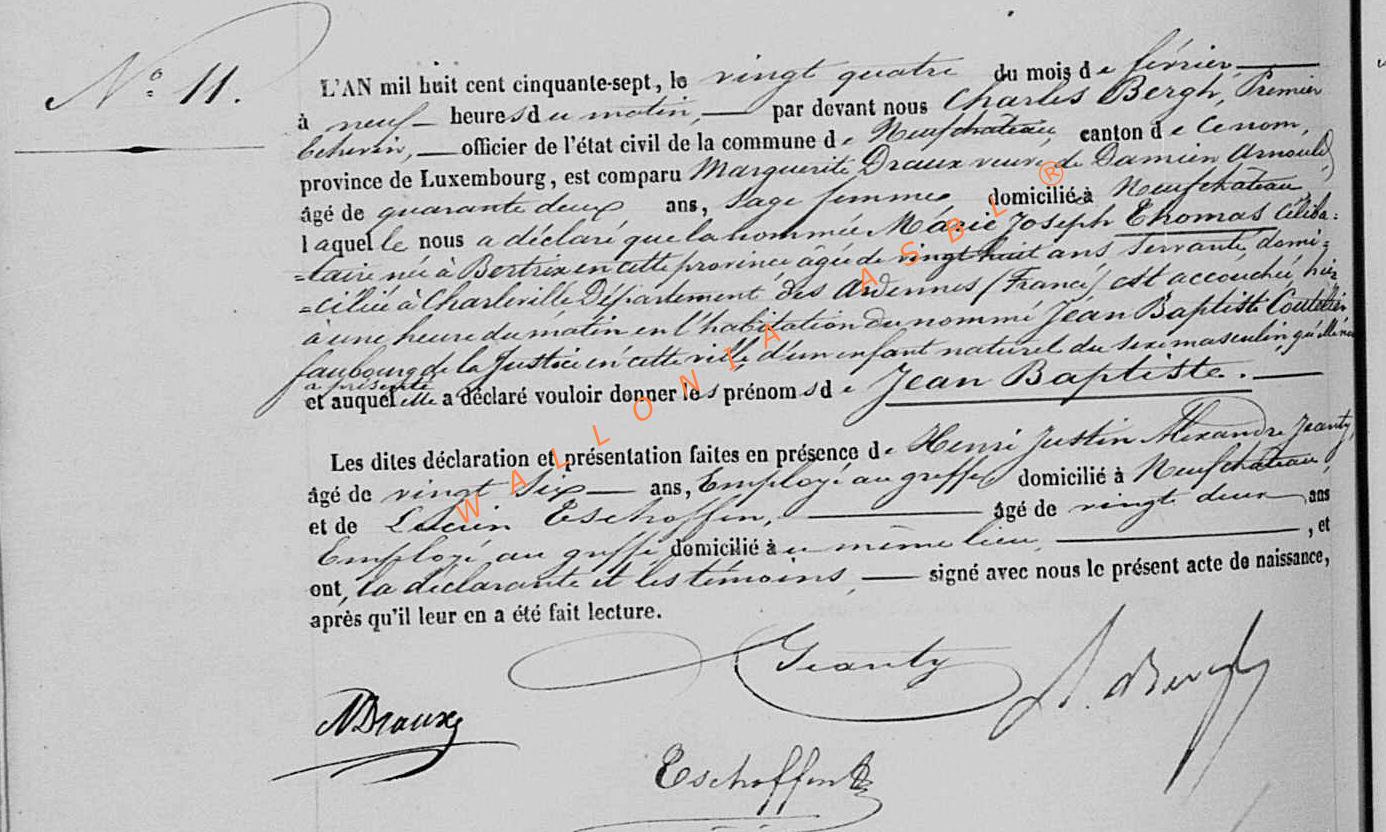 N° 11.
L'AN mil huit cent cinquante-sept, le vingt quatre du mois de février
à neuf heures du matin, par devant nous Charles Bergh, Premier
Echevin, officier de l'état civil de la commune de Neufchâteau, canton de ce nom,
province de Luxembourg, est comparu Marguerite Draux veuve de Damien Arnould,
âgé de quarante deux ans, Sage femme, domiciliée à Neufchâteau,
laquelle nous a déclaré que la nommée Marie Joseph Thomas Céliba=
=taire née à Bertrix en cette province âgée de vingt huit ans servante, domi=
=ciliée à Charleville Département des Ardennes (France) est accouchée, hier
à une heure du matin en l'habitation du nommé Jean Baptiste
faubourg de la Justice en cette ville, d'un enfant naturel du sexe masculin, qu'elle nous
a présenté
et auquel elle a déclaré vouloir donner les prénoms de Jean Baptiste.
Les dites déclaration et présentation faites en présence de Henri Justin Alexandre Jeanty,
âgé de vingt six ans, Employé au greffe domicilié à Neufchâteau,
et de Lucien Eschoffen, âgé de vingt deux ans
Employé au greffe domicilié au même lieu, , et
ont, la déclarante et les témoins, signé avec nous le présent acte de naissance,
après qu'il leur en a été fait lecture.
Jeanty
Bergh
MDraux
Eschoffen
WALLONIA ASBL ®